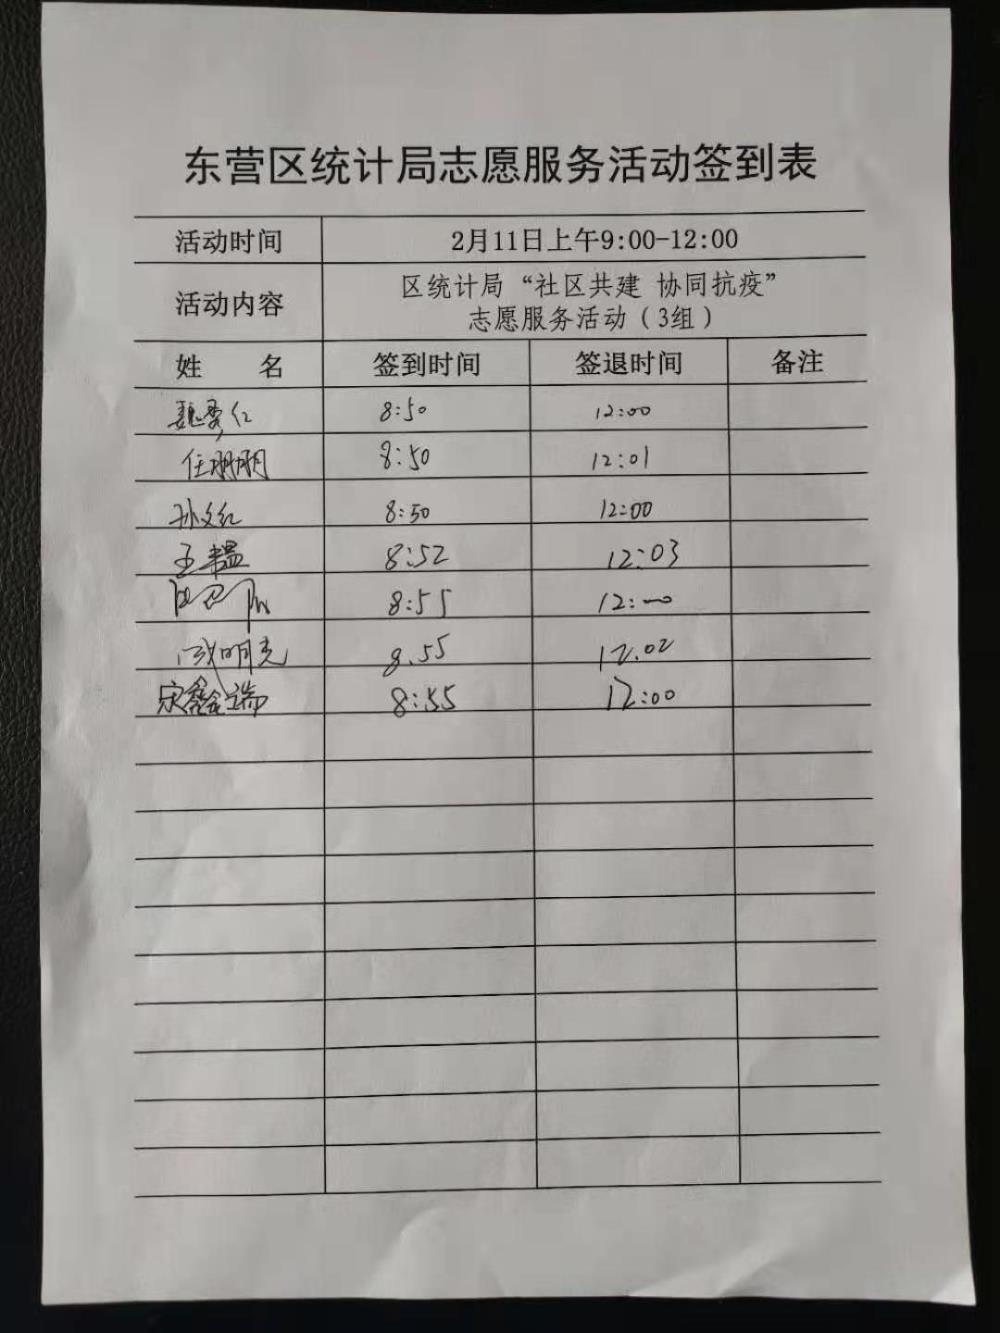 东营区统计局志愿服务活动签到表
活动时间 2月11日上午9:00-12:00
活动内容 区统计局“社区共建 协同抗疫”
志愿服务活动（3组）
姓 名 签到时间 签退时间 备注
8:50 12:00
任朋朋 8:50 12:01
孙文红 8:50 12:00
王韫 8:52 12:03
8:55 12:00
明亮 8.55 12.02
宋鑫瑞 8:55 12:00